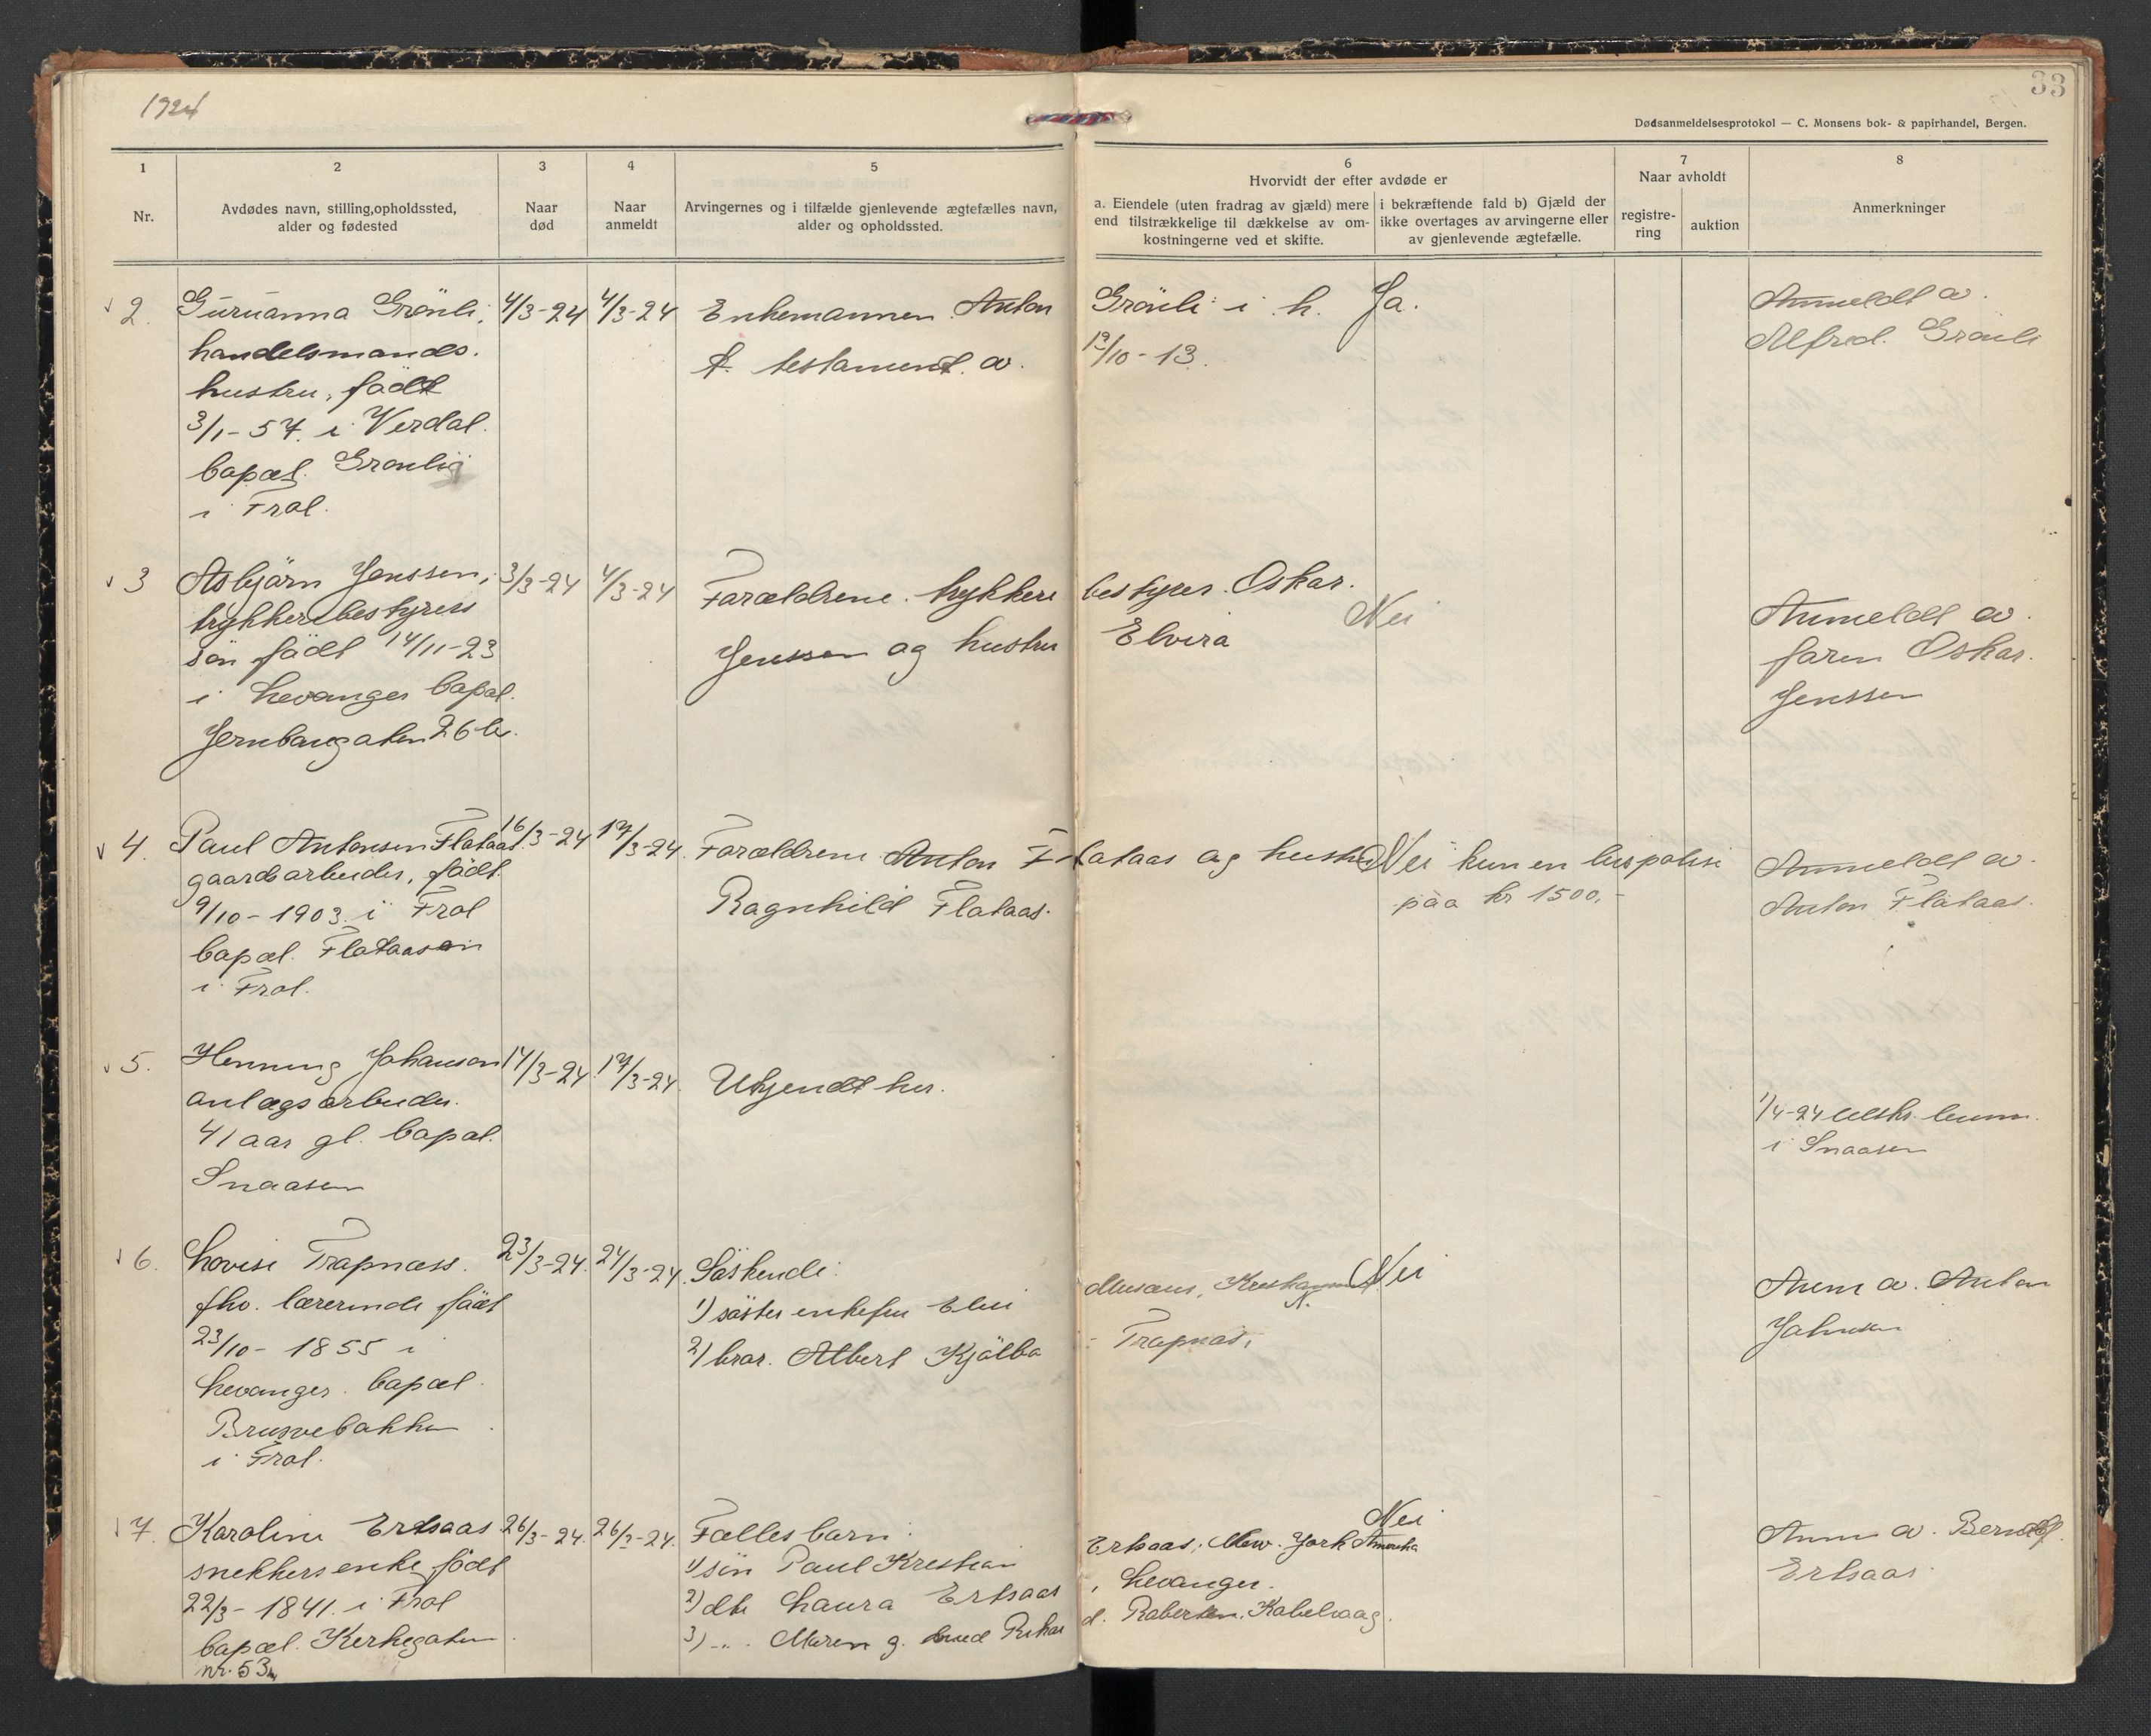 1924
33
Dødsanmeldelsesprotokol — C. Monsens bok- & papirhandel, Bergen.
1
Nr.
2
Avdødes navn, stilling,opholdssted,
alder og fødested
3
Naar
død
4
Naar
anmeldt
5
Arvingernes og i tilfælde gjenlevende ægtefælles navn,
alder og opholdssted.
6
Hvorvidt der efter avdøde er
a. Eiendele (uten fradrag av gjæld) mere
end tilstrækkelige til dækkelse av om-
kostningerne ved et skifte.
i bekræftende fald b) Gjæld der
ikke overtages av arvingerne eller
av gjenlevende ægtefælle.
7
Naar avholdt
registre-
ring
auktion
8
Anmerkninger
2. Guruanna Grönli, 4/3-24 4/3-24 Enkemannen Anton Grönli i h. Ja. Anmeldt av
handelsmands. testament av 13/10-13. Alfred Grönli
hustru, födt
3/1-57. i Verdal.
bopæl. Grönli
i Frol.
3 Asbjörn Jenssen, 3/3-24 4/3-24 Forældrene. trykkeribestyrer Oskar. Nei Anmeldt av
trykkeribestyrers Jenssen og hustru Elvira faren Oskar.
sön födt 14/11-23 Jenssen
i Levanger bopæl.
Jernbangaten 26 b.
4. Paul Antonsen Flataas. 16/3-24 17/3-24. Forældrene Anton Flataas og hustru Nei kun en livspolise Anmeldt av
gaardsarbeider, födt. Ragnhild Flataas. paa kr 1500,- Anton Flataas.
9/10-1903 i Frol
bopæl. Flataasen
i Frol.
5. Henning Johanson 14/3-24 17/3-24. Ukjendt her. 1/4-24
anlægsarbeider. i Snaasen
41 aar gl. bopæl.
Snaasen
6. Lovise Trapnæss. 23/3-24. 24/3-24. Söskende: Nei Anm av. Anton
fhv. lærerinde födt 1) söster enkefru Johnsen
23/10-1855 i 2) bror. Albert Trapnæs,
Levanger. bopæl.
Brusvebakken
i Frol.
7. Karoline Ertsaas 26/3-24. 26/3-24. Fælles barn: Nei Anm av.
snekkers enke födt 1) sön Paul Kristian Ertsaas, New. York Amerika Ertsaas
22/3-1841. i Frol 2) dtr Laura Ertsaas, Levanger.
bopæl. Kirkegaten 3) -"- Maren g. med Rikard. Robertsen. Kabelvaag.
nr. 53.